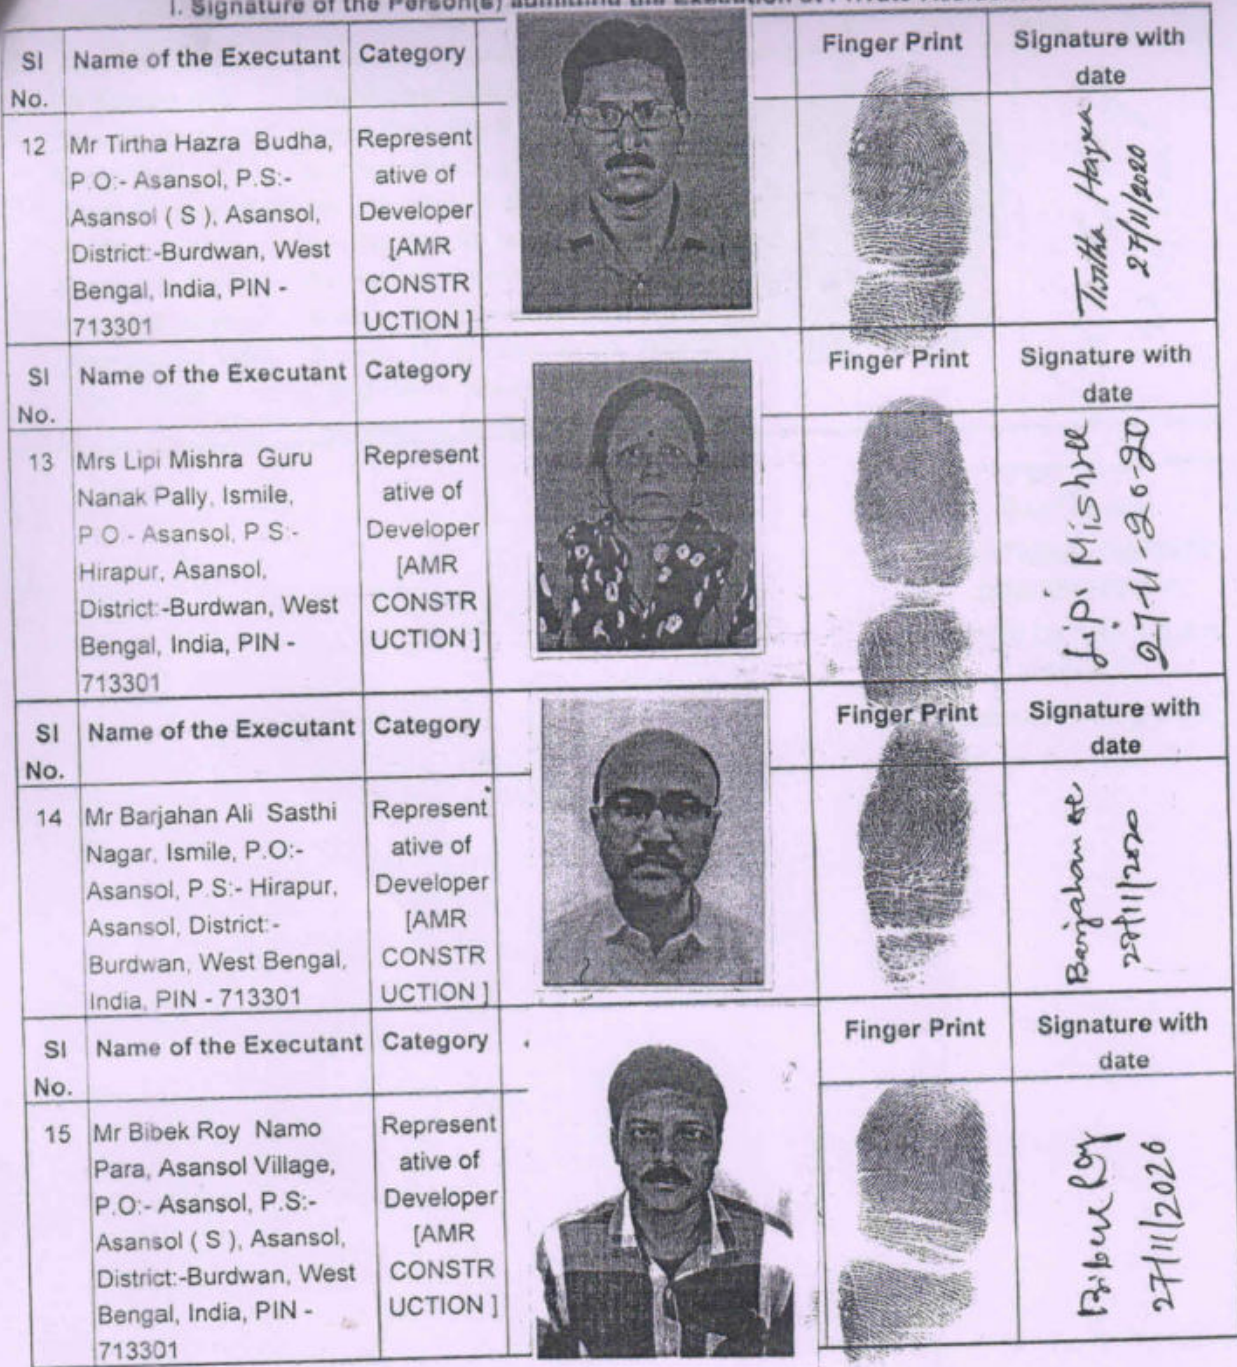 I. Signature of the Person(s) admitting the Execution at Private
Sl No. Name of the Executant Category Finger Print Signature with date
12 Mr Tirtha Hazra Budha, P.O:- Asansol, P.S:- Asansol ( S ), Asansol, District:-Burdwan, West Bengal, India, PIN - 713301
Represent
ative of
Developer
[AMR
CONSTR
UCTION ]
Tirtha Hazra
27/11/2020
Sl No. Name of the Executant Category Finger Print Signature with date
13 Mrs Lipi Mishra Guru Nanak Pally, Ismile, P.O:- Asansol, P.S:- Hirapur, Asansol, District:-Burdwan, West Bengal, India, PIN - 713301
Represent
ative of
Developer
[AMR
CONSTR
UCTION ]
Lipi Mishra
27-11-2020
Sl No. Name of the Executant Category Finger Print Signature with date
14 Mr Barjahan Ali Sasthi Nagar, Ismile, P.O:- Asansol, P.S:- Hirapur, Asansol, District:- Burdwan, West Bengal, India, PIN - 713301
Represent
ative of
Developer
[AMR
CONSTR
UCTION ]
Barjahan
27/11/2020
Sl No. Name of the Executant Category Finger Print Signature with date
15 Mr Bibek Roy Namo Para, Asansol Village, P.O:- Asansol, P.S:- Asansol ( S ), Asansol, District:-Burdwan, West Bengal, India, PIN - 713301
Represent
ative of
Developer
[AMR
CONSTR
UCTION ]
Bibek Roy
27/11/2020